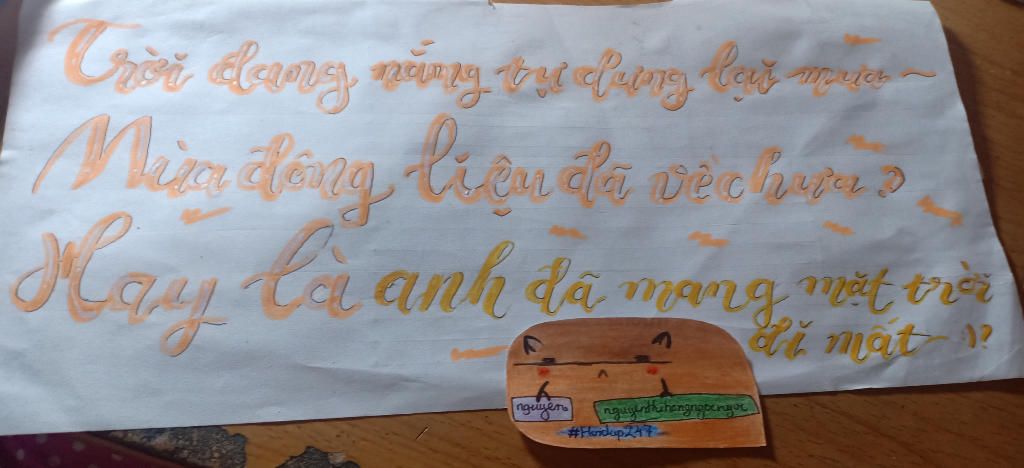 Trời đang nắng tự dưng lại mưa ~
Mùa đông liệu đã về chưa?
Hay là anh đã mang mặt trời
đi mất ~)?
nguyên
#Hendup247